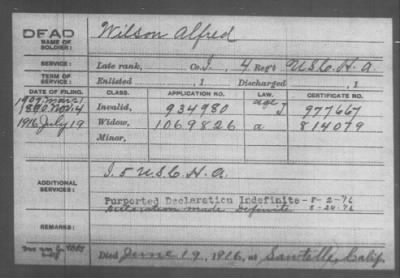 DEAD
NAME OF SOLDIER: Wilson Alfred
SERVICE: Late rank, Co. I, 4 Reg't U.S.C.H.A.
TERM OF SERVICE: Enlisted , 1 Discharged , 1
DATE OF FILING. CLASS. APPLICATION NO. LAW. CERTIFICATE NO.
1907 Mar 1
1890 Nov. 4 Invalid, 934980 age J 977667
1916 July 19 Widow, 1069826 a 814079
Minor,
ADDITIONAL SERVICES: I. 5 U.S.C.H.A.
Purported Declaration Indefinite - 8-2-76
Declaration made Definite 8-24-76
REMARKS:
Died June 19, 1916, at Sawtelle, Calif.